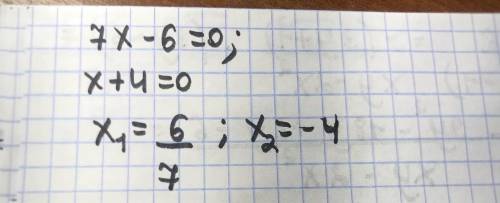 7x-6=0;
x+4=0
x₁=6/7; x₂=-4